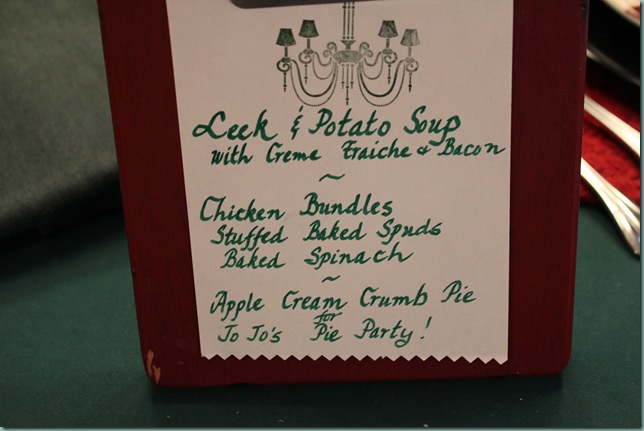 Leek & Potato Soup
with Creme Fraiche & Bacon
~
Chicken Bundles
Stuffed Baked Spuds
Baked Spinach
~
Apple Cream Crumb Pie
for
Jo Jo's Pie Party!